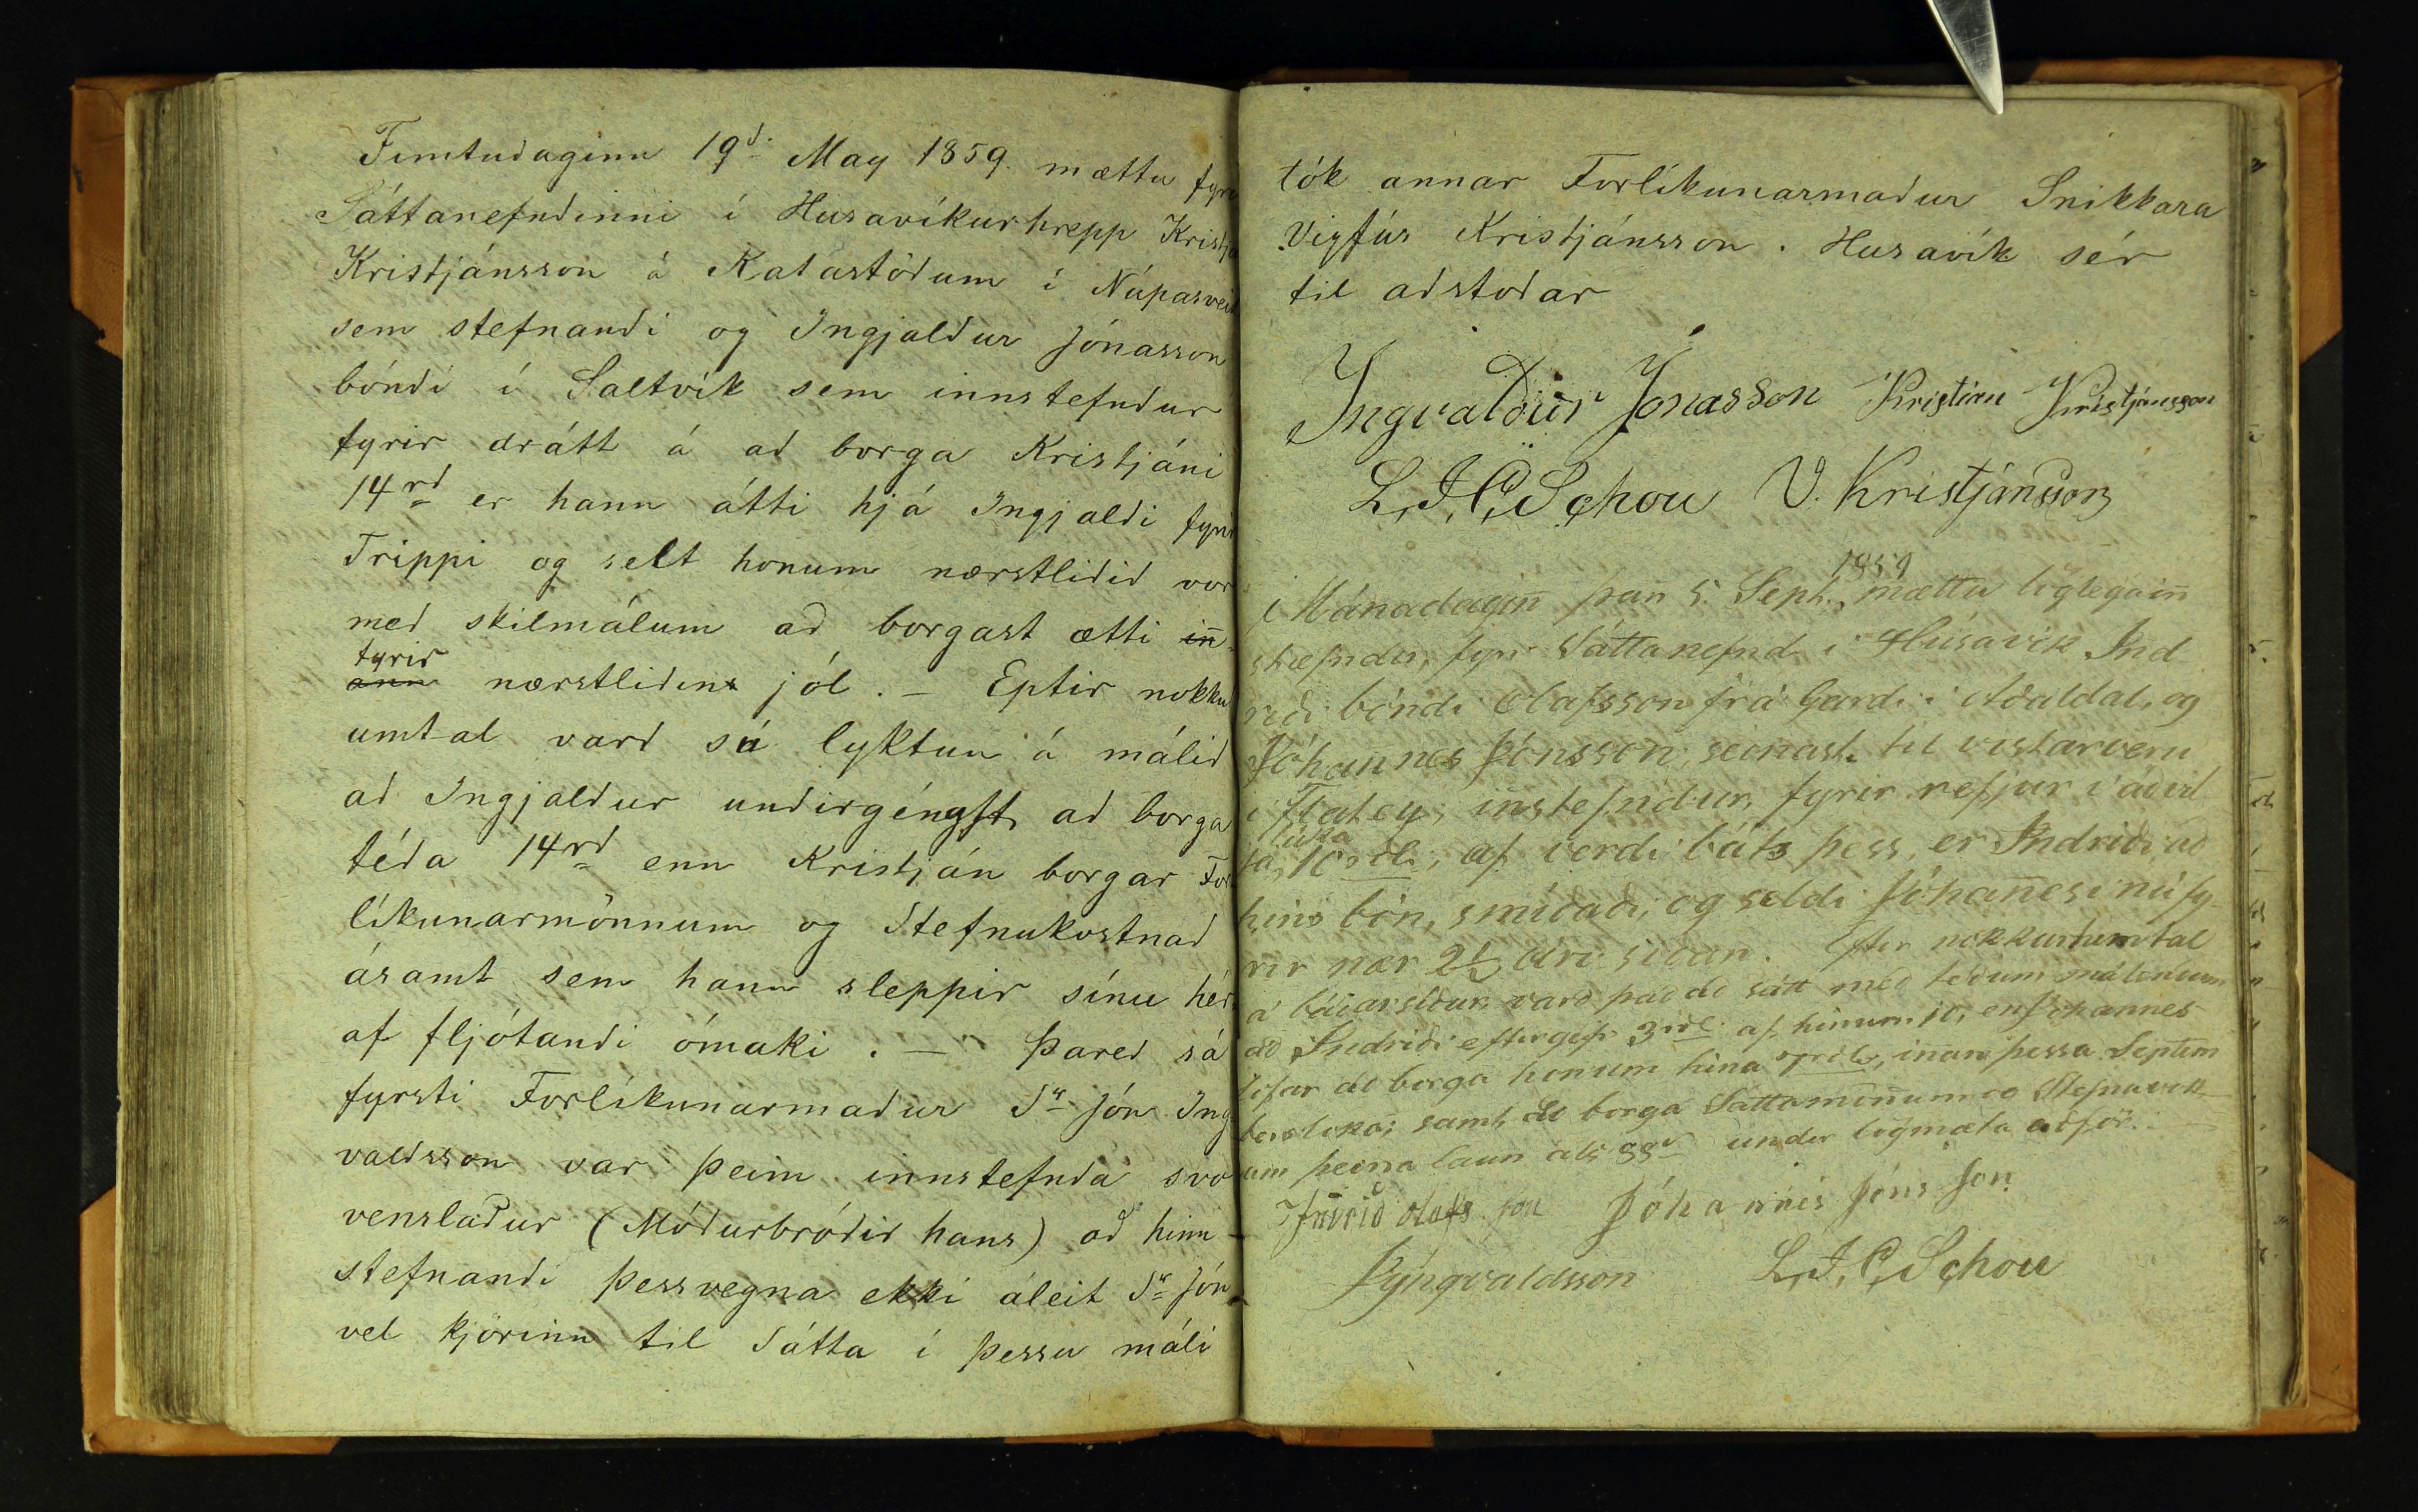 Fimtudaginn 19d. May 1859. mættu fyri
Sáttanefndinni í Husavíkurhrepp Kristja
Kristjánsson á Katastödum í Núpasveit
sem stefnandi og Ingjaldur Jónasson
bóndi í Saltvík sem innstefndur
fyrir drátt á ad borga Kristjáni
14rd er hann átti hjá Ingjaldi fyrir
Trippi og selt honum næstlidid vor
med skilmálum ad borgast ætti in̄
fyrir
ann næstlidins jól. – Eptir nokkud
umtal vard sú lyktun á málid
ad Ingjaldur undirgéngst ad borga
téda 14rd enn Kristján borgar For-
líkunarmönnum og Stefnukostnad
ásamt sem hann sleppir sínu hér
af fljótandi ómaki. – Þared sá
fyrsti Forlíkunarmadur Sr Jón Ing
valdsson var þeim innstefnda svo
vensladur (Módurbródir hans) ad hinn
stefnandi þessvegna ekki áleit Sr Jón
vel kjörinn til Sátta í þessu máli
tók annar Forlíkunarmadur Snikkara
Vigfús Kristjánsson. Husavík sér
til adstodar
Ingvaldur Jónasson Kristian Kristjánsson
L.J.C. Schou V. Kristjánsson
1859
Mánadagin̄ þan̄ 5. Sept., mættu löglega in̄
stefndir, fyri Sáttanefnd i Húsavík Ind
riði bóndi Olafsson frá Gardi i Aðaldal, og
Jóhannes Jónsson, seinast til vistarveru
i Flatey, in̄stefndur, fyrir refjur i að
lúka
10 rdl, af verdi báts þess, er Indridi að
hins bón, smíðaði, og seldi Jóhan̄esi nú fy-
rir nær 2½ ári síðan. Eftir nokkurt umtal
á báðar síður varð það að sátt með teðum málendum
að Indriði eftirgefr 3rdl af hinum 10, en Jóhannes
lofar að borga honum hina 7rdl, in̄an þessa Septem
bers loka; samt að borga Sáttamön̄um og Stefnuvott-
um þeirra laun under lögmæta aðför.
Indrið Olafs son Jóhannes Jóns son
J Yngvaldsson L.J.C. Schou